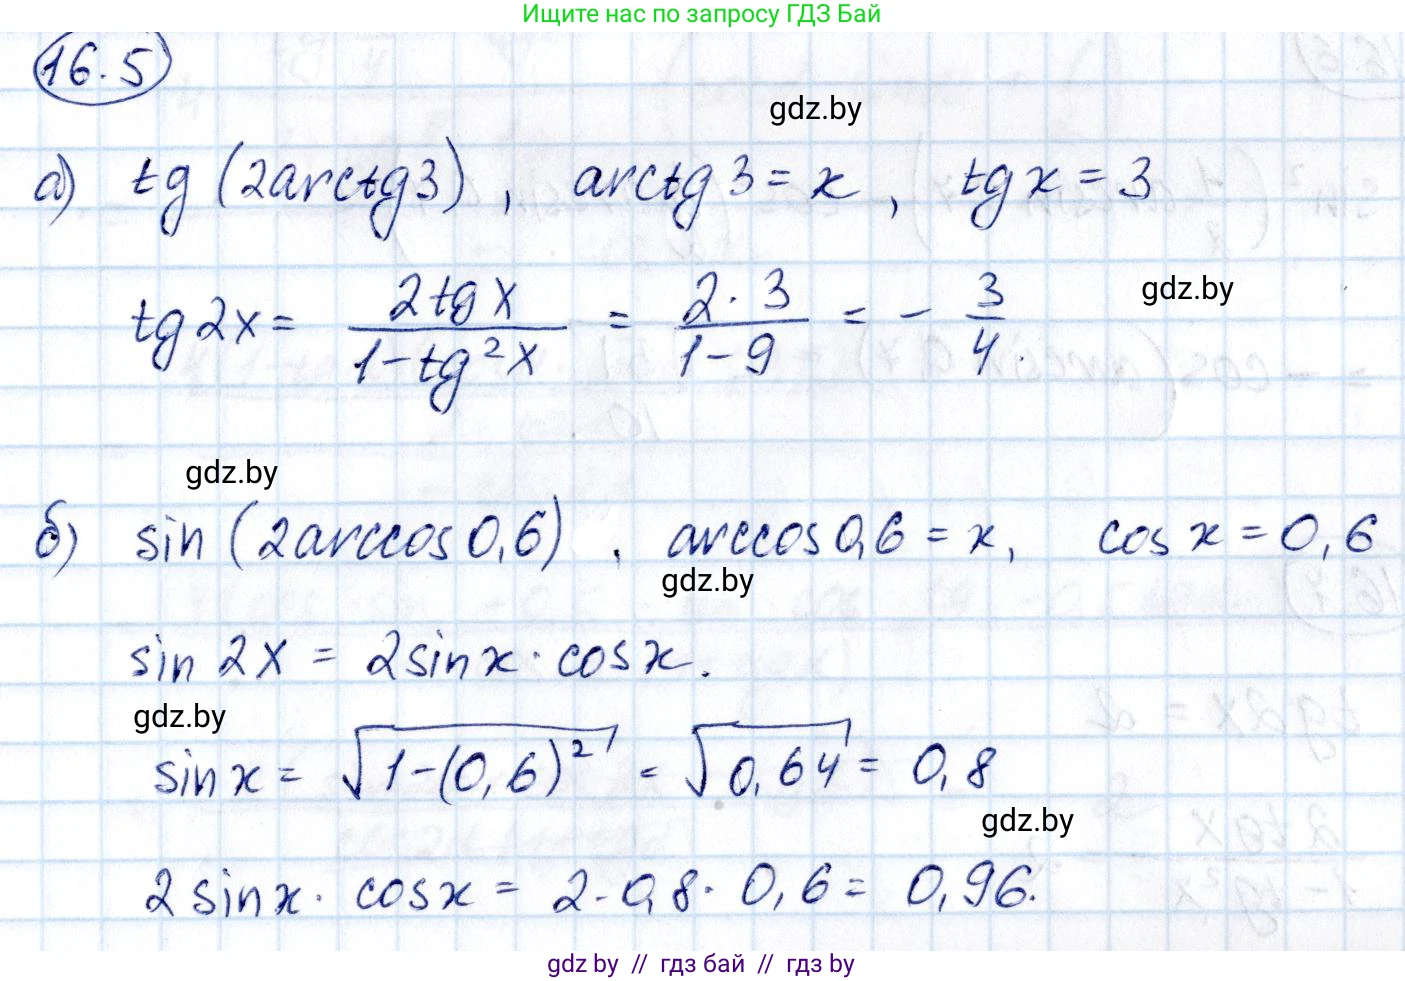 Ищите нас по запросу ГДЗ Бай
16.5
gdz.by
а) tg (2arctg3), arctg 3 = x, tg x = 3
tg 2x = 2tg x / 1-tg²x = 2·3 / 1-9 = - 3/4.
gdz.by
gdz.by
б) sin (2arccos 0,6), arccos 0,6 = x, cos x = 0,6
gdz.by
sin 2x = 2sin x · cos x.
gdz.by
sin x = √1-(0,6)² = √0,64 = 0,8
gdz.by
2 sin x · cos x = 2·0,8·0,6 = 0,96.
gdz by // гдз бай // гдз by